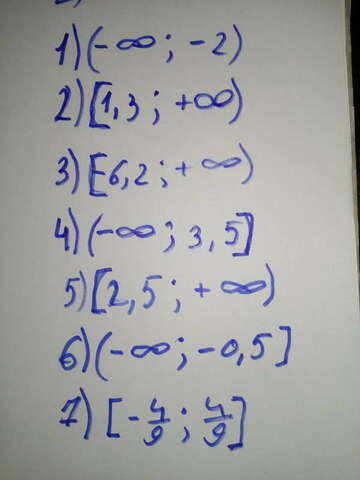 1) (-∞ ; -2)
2) [1,3 ; +∞)
3) [6,2 ; +∞)
4) (-∞ ; 3,5]
5) [2,5 ; +∞)
6) (-∞ ; -0,5]
7) [-4/9 ; 4/9]